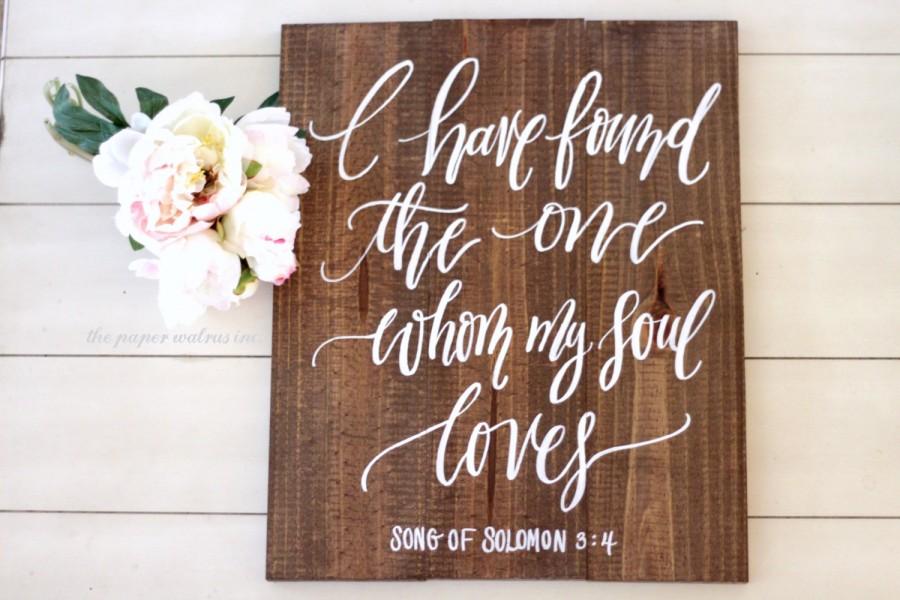 I have found
the one
whom my soul
loves
SONG OF SOLOMON 3:4
the paper walrus inc.